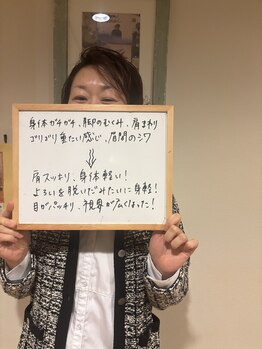 身体ガチガチ、脚のむくみ、肩まわり
ゴリゴリ重たい感じ、眉間のシワ
⇓
肩スッキリ、身体軽い!
よろいを脱いだみたいに身軽!
目がパッチリ、視界が広くなった!